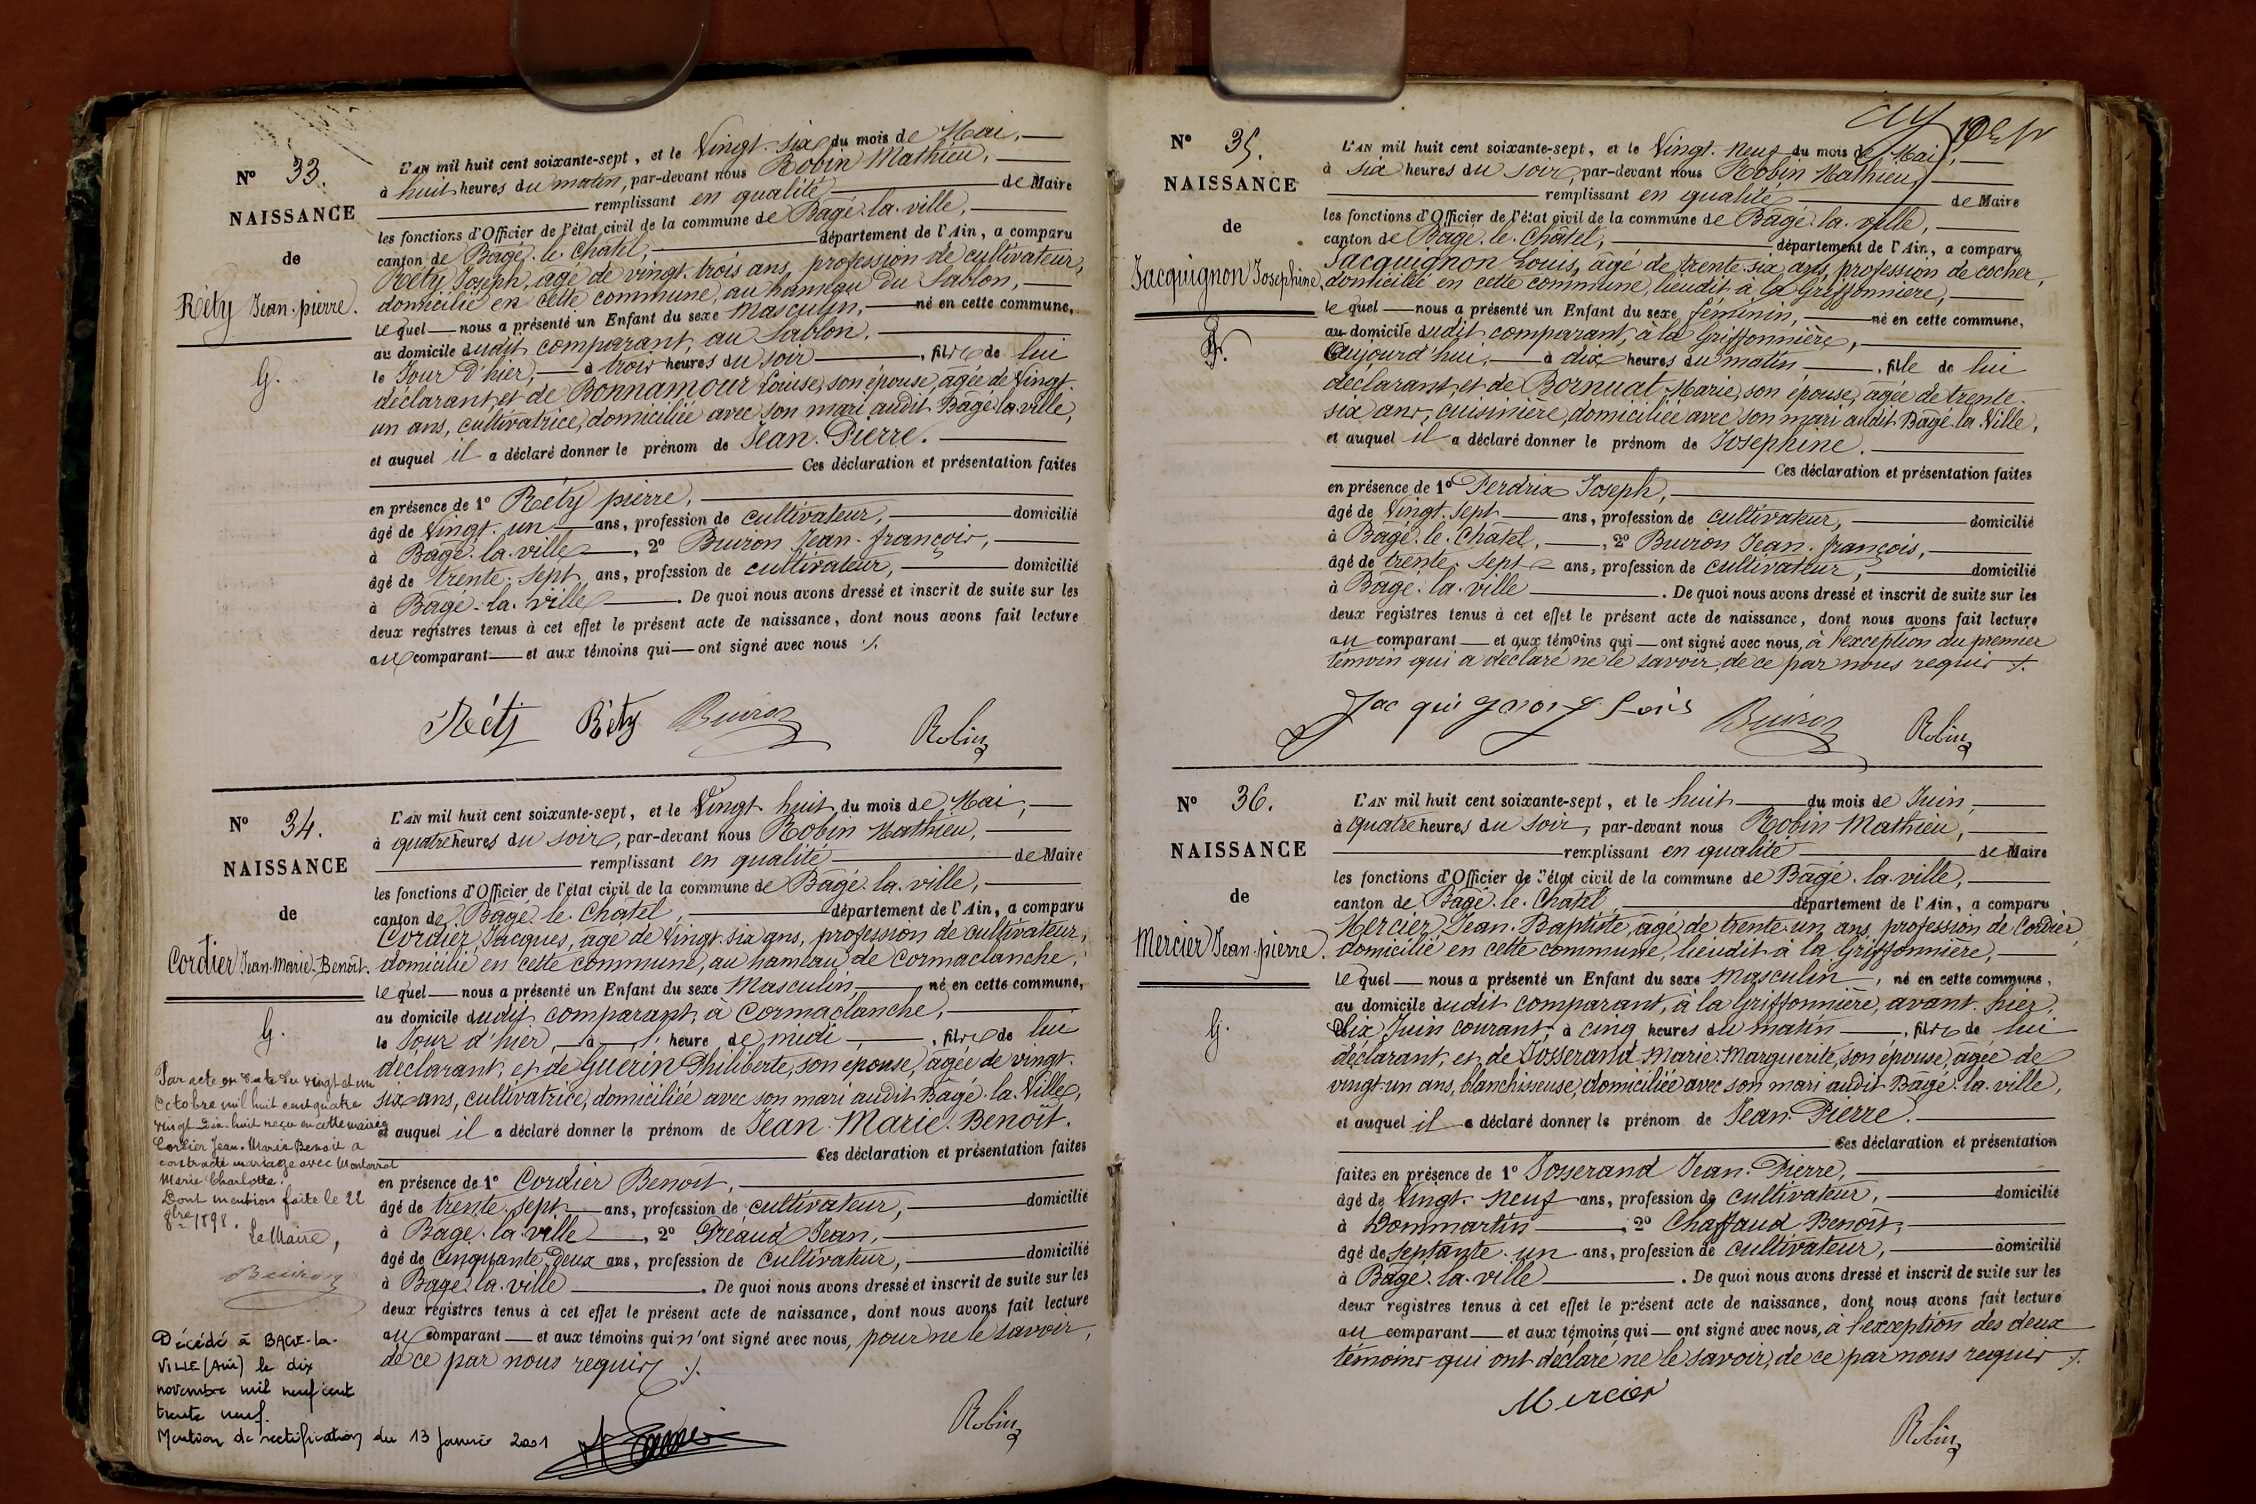 N° 33.
NAISSANCE
de
Réty Jean-pierre.
G.
L'AN mil huit cent soixante-sept, et le Vingt-six du mois de Mai,
à huit heures du matin, par-devant nous Robin Mathieu,
remplissant en qualité de Maire
les fonctions d'Officier de l'état civil de la commune de Bâgé-la-ville,
canton de Bâgé-le-Châtel, département de l'Ain, a comparu
Réty Joseph, âgé de vingt-trois ans, profession de cultivateur,
domicilié en cette commune, au hameau du Sablon,
lequel nous a présenté un Enfant du sexe Masculin, né en cette commune,
au domicile dudit comparant, au Sablon,
le Jour d'hier, à trois heures du soir, fils de lui
déclarant, et de Bonnamour Louise, son épouse, âgée de Vingt-
un ans, cultivatrice, domiciliée avec son mari audit Bâgé-la-ville,
et auquel il a déclaré donner le prénom de Jean-Pierre.
Ces déclaration et présentation faites
en présence de 1° Réty pierre,
âgé de Vingt-un ans, profession de cultivateur, domicilié
à Bâgé-la-ville, 2° Buiron Jean-françois,
âgé de trente-sept ans, profession de cultivateur, domicilié
à Bâgé-la-ville. De quoi nous avons dressé et inscrit de suite sur les
deux registres tenus à cet effet le présent acte de naissance, dont nous avons fait lecture
au comparant et aux témoins qui ont signé avec nous ./.
Réty Réty Buiron Robin
N° 34.
NAISSANCE
de
Cordier Jean-Marie-Benoît.
G.
Par acte en date du vingt et un
Octobre mil huit cent quatre
vingt dix-huit reçu en cette mairie
Cordier Jean-Marie Benoît a
contracté mariage avec Montarrat
Marie Charlotte.
Dont mention faite le 22
8bre 1898.
Le Maire,
Buiron
Décédé à BAGE-la-
VILLE (Ain) le dix
novembre mil neuf cent
trente neuf.
Mention de rectification du 13 Janvier 2001
L'AN mil huit cent soixante-sept, et le Vingt-huit du mois de Mai,
à quatre heures du soir, par-devant nous Robin Mathieu,
remplissant en qualité de Maire
les fonctions d'Officier de l'état civil de la commune de Bâgé-la-ville,
canton de Bâgé-le-Châtel, département de l'Ain, a comparu
Cordier Jacques, âgé de Vingt-six ans, profession de cultivateur,
domicilié en cette commune, au hameau de Cormaclanche,
lequel nous a présenté un Enfant du sexe Masculin, né en cette commune,
au domicile dudit comparant, à Cormaclanche,
le Jour d'hier, à 1 heure de midi, fils de lui
déclarant, et de Guérin Philiberte, son épouse, âgée de vingt-
six ans, cultivatrice, domiciliée avec son mari audit Bâgé-la-Ville,
et auquel il a déclaré donner le prénom de Jean-Marie-Benoît.
Ces déclaration et présentation faites
en présence de 1° Cordier Benoît,
âgé de trente-sept ans, profession de cultivateur, domicilié
à Bâgé-la-ville, 2° Préaud Jean,
âgé de Cinquante-deux ans, profession de cultivateur, domicilié
à Bâgé-la-ville. De quoi nous avons dressé et inscrit de suite sur les
deux registres tenus à cet effet le présent acte de naissance, dont nous avons fait lecture
au comparant et aux témoins qui n'ont signé avec nous, pour ne le savoir,
de ce par nous requis ./.
Robin
N° 35.
NAISSANCE
de
Jacquignon Josephine,
L'AN mil huit cent soixante-sept, et le Vingt-neuf du mois de Mai,
à six heures du soir, par-devant nous Robin Mathieu,
remplissant en qualité de Maire
les fonctions d'Officier de l'état civil de la commune de Bâgé-la-ville,
canton de Bâgé-le-Châtel, département de l'Ain, a comparu
Jacquignon Louis, âgé de trente-six ans, profession de cocher,
domicilié en cette commune, lieudit à la Griffonnière,
lequel nous a présenté un Enfant du sexe féminin, né en cette commune,
au domicile dudit comparant, à la Griffonnière,
Aujourd'hui, à dix heures du matin, fille de lui
déclarant, et de Bornuat Marie, son épouse, âgée de trente-
six ans, cuisinière, domiciliée avec son mari audit Bâgé-la-Ville,
et auquel il a déclaré donner le prénom de Josephine.
Ces déclaration et présentation faites
en présence de 1° Perdrix Joseph,
âgé de Vingt-sept ans, profession de cultivateur, domicilié
à Bâgé-le-Châtel, 2° Buiron Jean-françois,
âgé de trente-sept ans, profession de cultivateur, domicilié
à Bâgé-la-ville. De quoi nous avons dressé et inscrit de suite sur les
deux registres tenus à cet effet le présent acte de naissance, dont nous avons fait lecture
au comparant et aux témoins qui ont signé avec nous, à l'exception du premier
témoin qui a déclaré ne le savoir, de ce par nous requis ./.
Jacquignon Louis Buiron Robin
N° 36.
NAISSANCE
de
Mercier Jean-pierre.
G.
L'AN mil huit cent soixante-sept, et le huit du mois de Juin,
à quatre heures du soir, par-devant nous Robin Mathieu,
remplissant en qualité de Maire
les fonctions d'Officier de l'état civil de la commune de Bâgé-la-ville,
canton de Bâgé-le-Châtel, département de l'Ain, a comparu
Mercier Jean-Baptiste, âgé de trente-un ans, profession de Cordier,
domicilié en cette commune, lieudit à la Griffonnière,
lequel nous a présenté un Enfant du sexe Masculin, né en cette commune,
au domicile dudit comparant, à la Griffonnière, avant-hier,
Six Juin courant, à cinq heures du matin, fils de lui
déclarant, et de Josserand Marie-Marguerite, son épouse, âgée de
vingt-un ans, blanchisseuse, domiciliée avec son mari audit Bâgé-la-ville,
et auquel il a déclaré donner le prénom de Jean-Pierre.
Ces déclaration et présentation
faites en présence de 1° Josserand Jean-Pierre,
âgé de Vingt-neuf ans, profession de cultivateur, domicilié
à Dommartin, 2° Chaffaud Benoît,
âgé de Septante-un ans, profession de cultivateur, domicilié
à Bâgé-la-ville. De quoi nous avons dressé et inscrit de suite sur les
deux registres tenus à cet effet le présent acte de naissance, dont nous avons fait lecture
au comparant et aux témoins qui ont signé avec nous, à l'exception des deux
témoins qui ont déclaré ne le savoir, de ce par nous requis ./.
Mercier
Robin